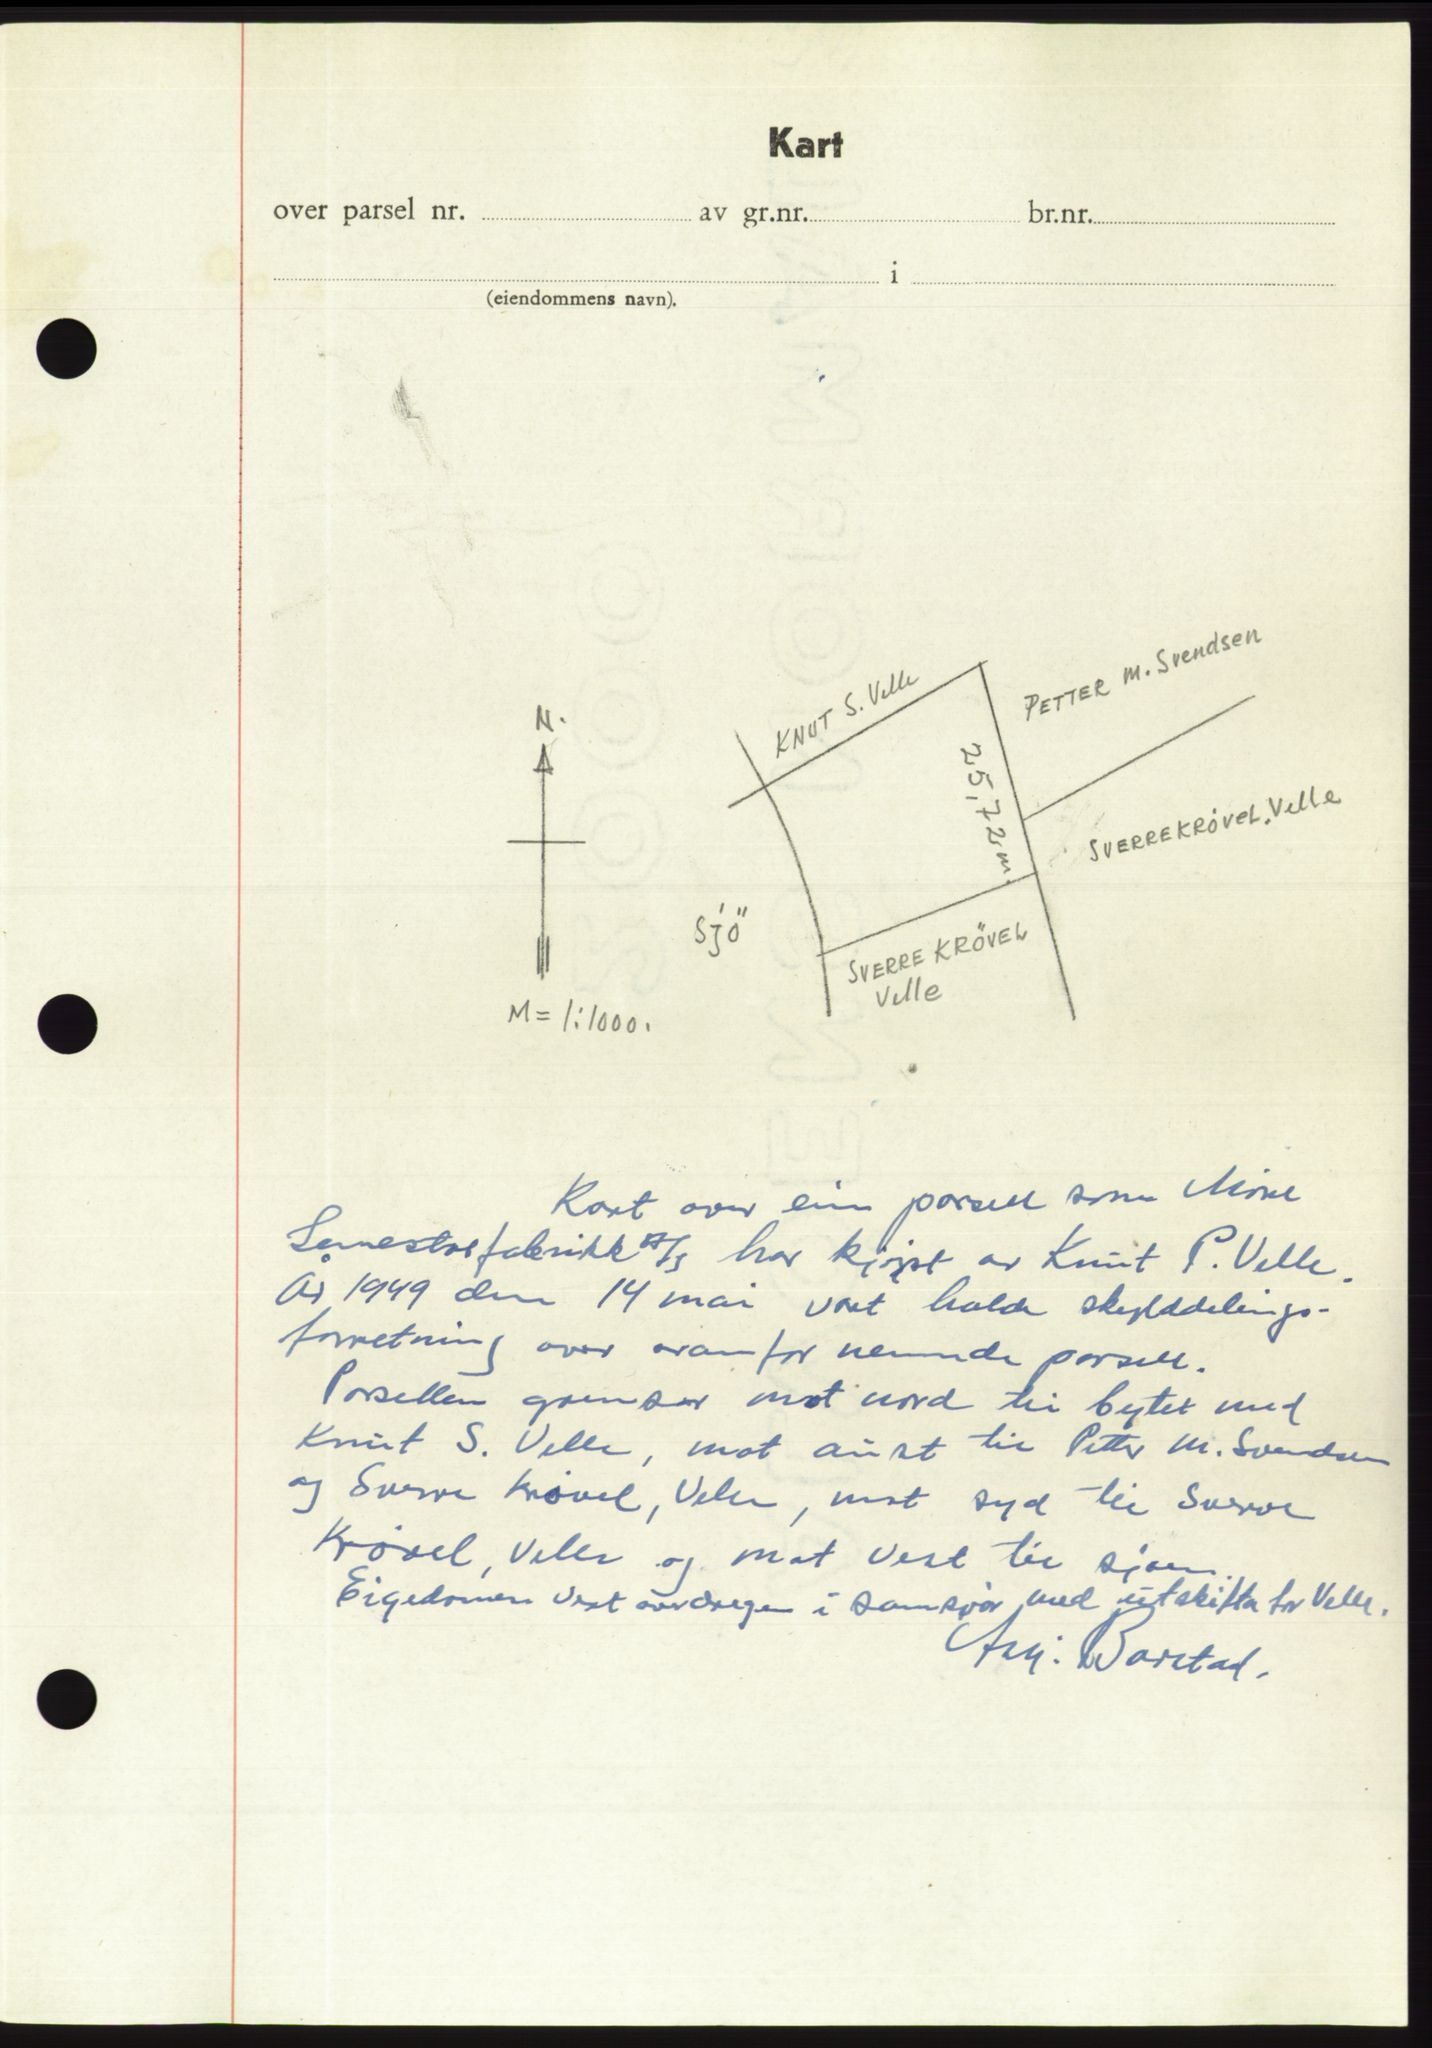 Kart
over parsel nr. av gr.nr. br.nr.
i
(eiendommens navn).
N.
M = 1:1000.
KNUT S. Velle
PETTER M. Svendsen
25,72 m.
SVERRE KRÖVEL. Velle
Sjö
SVERRE KRÖVEL
Velle
Kart over ein parsell som Möre
fabrikk A/S har kjøpt av Knut P. Velle.
År 1949 den 14 mai vart halde skylddelings-
forretning over ovanfor nemnde parsell.
Parsellen grenser mot nord til bytet med
Knut S. Velle, mot aust til Petter M. Svendsen
og Sverre Krövel, Velle, mot syd til Sverre
Krövel, Velle og mot vest til sjöen.
Eigedomen vert i samsvar med utskifta for Velle.
Barstad.